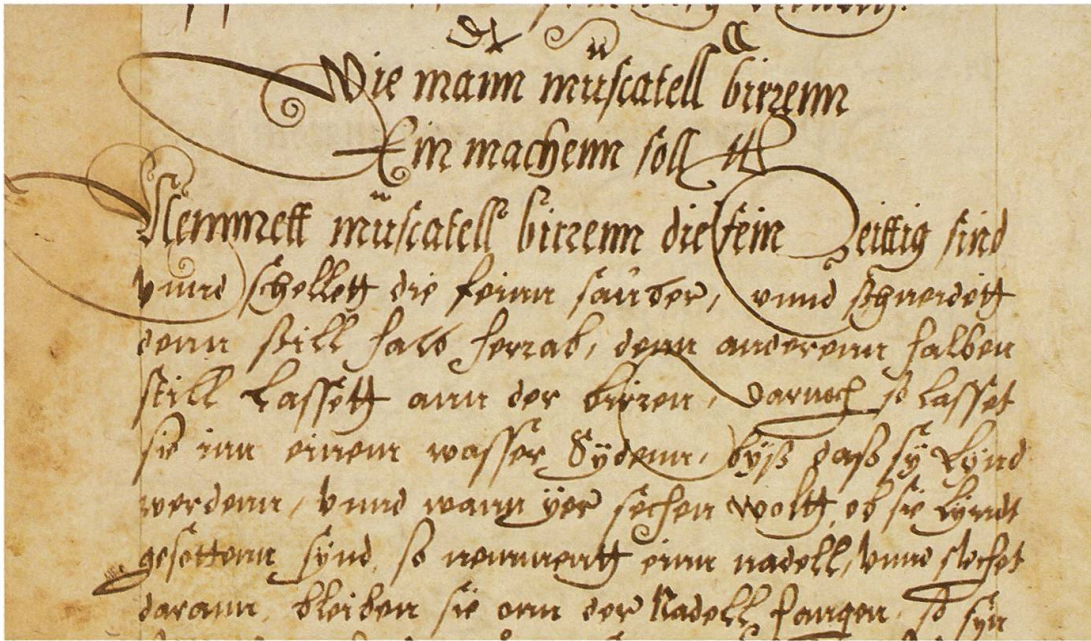 Wie mann müscatell birrenn
Ein machenn soll
Nemmett müscatell birrenn die fein Zeittig sind
vnnd schellett die feinn sauber, vnnd schneidett
denn still halb herrab, denn anderenn halben
still Lassett ann der birren, darnoch so lasset
sie inn einem wasser Sÿdenn, byß daß sÿ Lÿnd
werdenn, vnnd wann ÿer sechen woltt, ob sie lÿndt
gesottenn sÿnd, so nemmentt einn nadell, vnnd stechet
darann, bleiben sie ann der Nadell hangen, so sÿn